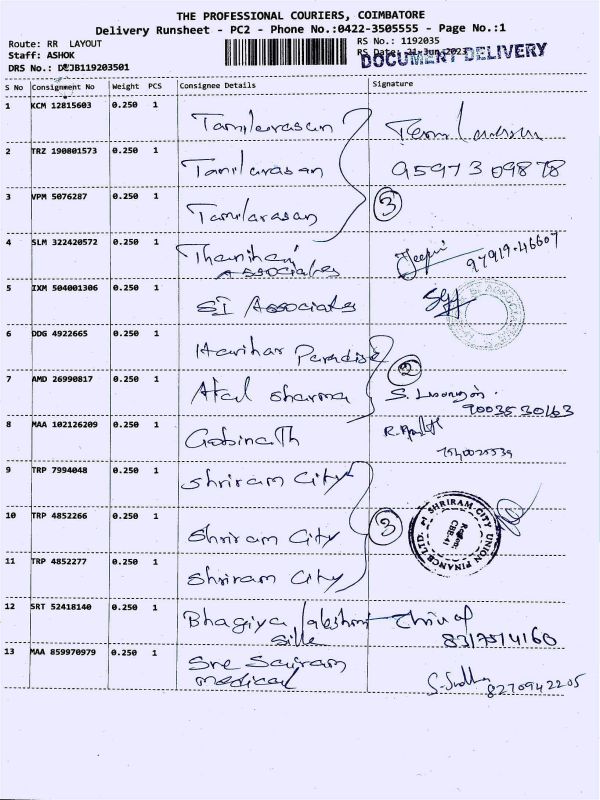 THE PROFESSIONAL COURIERS, COIMBATORE
Delivery Runsheet - PC2 - Phone No.:0422-3505555 - Page No.:1
Route: RR LAYOUT
RS No.: 1192035
Staff: ASHOK
RS Date: 21-Jun-2023
DOCUMENT DELIVERY
DRS No.: DEJB119203501
S No Consignment No Weight PCS Consignee Details Signature
1 KCM 12815603 0.250 1 Tamilarasan
2 TRZ 190801573 0.250 1 Tamilarasan 9597309878
3 VPM 5076287 0.250 1 Tamilarasan 3
4 SLM 322420572 0.250 1 97919-46607
Associates
5 IXM 504001306 0.250 1 SI Associates
6 DDG 4922665 0.250 1 Harihar Paradise
2
7 AMD 26990817 0.250 1 Atal Sharma S.
9003530163
8 MAA 102126209 0.250 1 Gobinath R.
7540025539
9 TRP 7994048 0.250 1 Shriram City
10 TRP 4852266 0.250 1 Shriram City 3
SHRIRAM CITY UNION FINANCE LTD.
CBE-41
11 TRP 4852277 0.250 1 Shriram City
12 SRT 52418140 0.250 1 Bhagiya lakshmi
Silk 8317514160
13 MAA 859970979 0.250 1 Sree Sairam
medical 8270942205